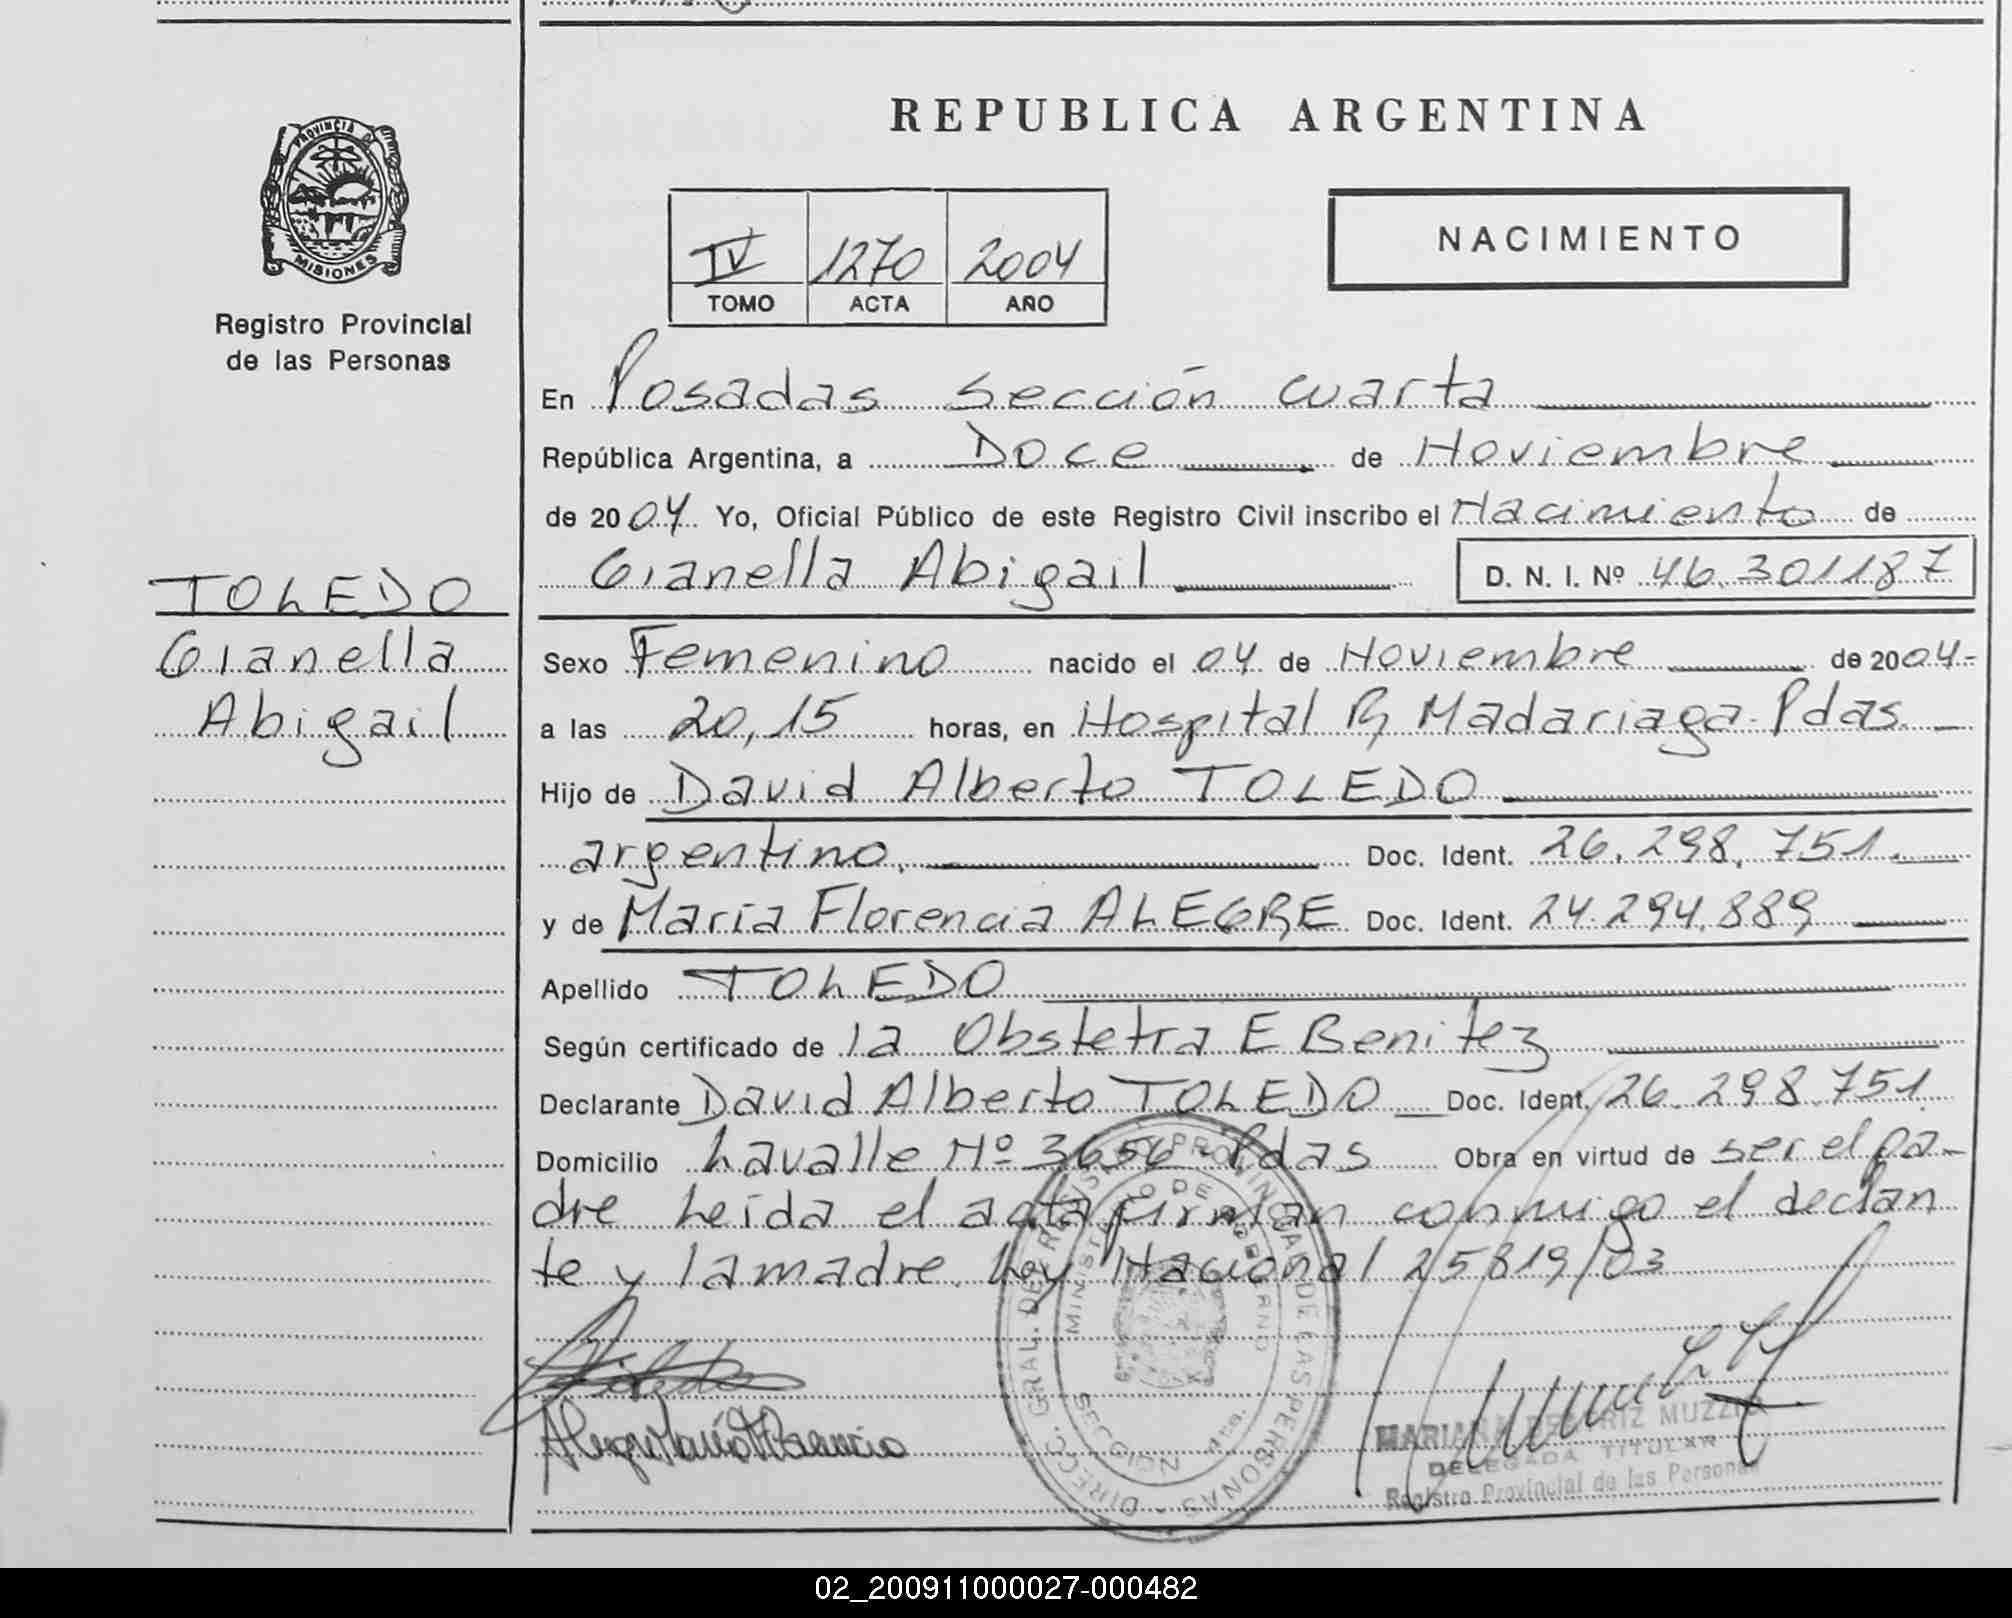 REPUBLICA ARGENTINA
PROVINCIA DE
MISIONES
Registro Provincial
de las Personas
IV 1270 2004
TOMO ACTA AÑO
NACIMIENTO
TOLEDO
Gianella
Abigail
En Posadas sección cuarta
República Argentina, a Doce de Noviembre
de 2004 Yo, Oficial Público de este Registro Civil inscribo el Nacimiento de
Gianella Abigail D. N. I. Nº 46.301187
Sexo Femenino nacido el 04 de Noviembre de 2004-
a las 20,15 horas, en Hospital R Madariaga. Pdas.
Hijo de David Alberto TOLEDO
argentino. Doc. Ident. 26.298.751.
y de María Florencia ALEGRE Doc. Ident. 24.294.889
Apellido TOLEDO
Según certificado de la Obstetra E Benitez
Declarante David Alberto TOLEDO Doc. Ident. 26.298.751.
Domicilio Lavalle Nº 3656 - Pdas Obra en virtud de ser el pa-
dre Leída el acta firman conmigo el declan
te y la madre. Ley Nacional 25819/03
DIRECC. GRAL. DEL REGISTRO PROVINCIAL DE LAS PERSONAS
MINISTERIO DE GOBIERNO
SECCION 4ta.
Alegre María Florencia
MARIANA BEATRIZ MUZZIO
DELEGADA TITULAR
Registro Provincial de las Personas
02_200911000027-000482